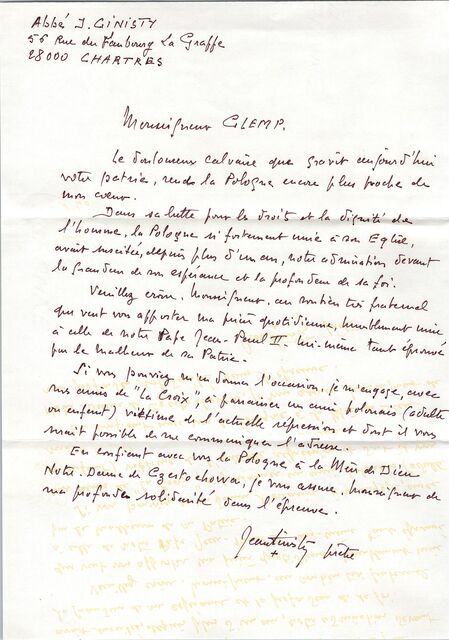 Abbé J. GINISTY
56 Rue du Faubourg La Grappe
28000 CHARTRES
Monseigneur GLEMP.
Le douloureux calvaire que gravit aujourd'hui
votre patrie, rends la Pologne encore plus proche de
mon coeur.
Dans sa lutte pour le droit et la dignité de
l'homme, la Pologne si fortement unie à son Eglise,
avait suscitée, depuis plus d'un an, notre admiration devant
la grandeur de son espérance et la profondeur de sa foi.
Veuillez croire, Monseigneur, au soutien très fraternel
que veut vous apporter ma prière quotidienne, humblement unie
à celle de notre Pape Jean-Paul II. lui-même tant éprouvé
par le malheur de sa Patrie.
Si vous pouviez m'en donner l'occasion, je m'engage, avec
mes amis de "La Croix", à parrainer un ami polonais (adulte
ou enfant) victime de l'actuelle répression et dont il vous
serait possible de me communiquer l'adresse.
En confiant avec vous la Pologne à la Mère de Dieu
Notre-Dame de Czestochowa, je vous assure, Monseigneur de
ma profonde solidarité dans l'épreuve.
Jean Ginisty prêtre